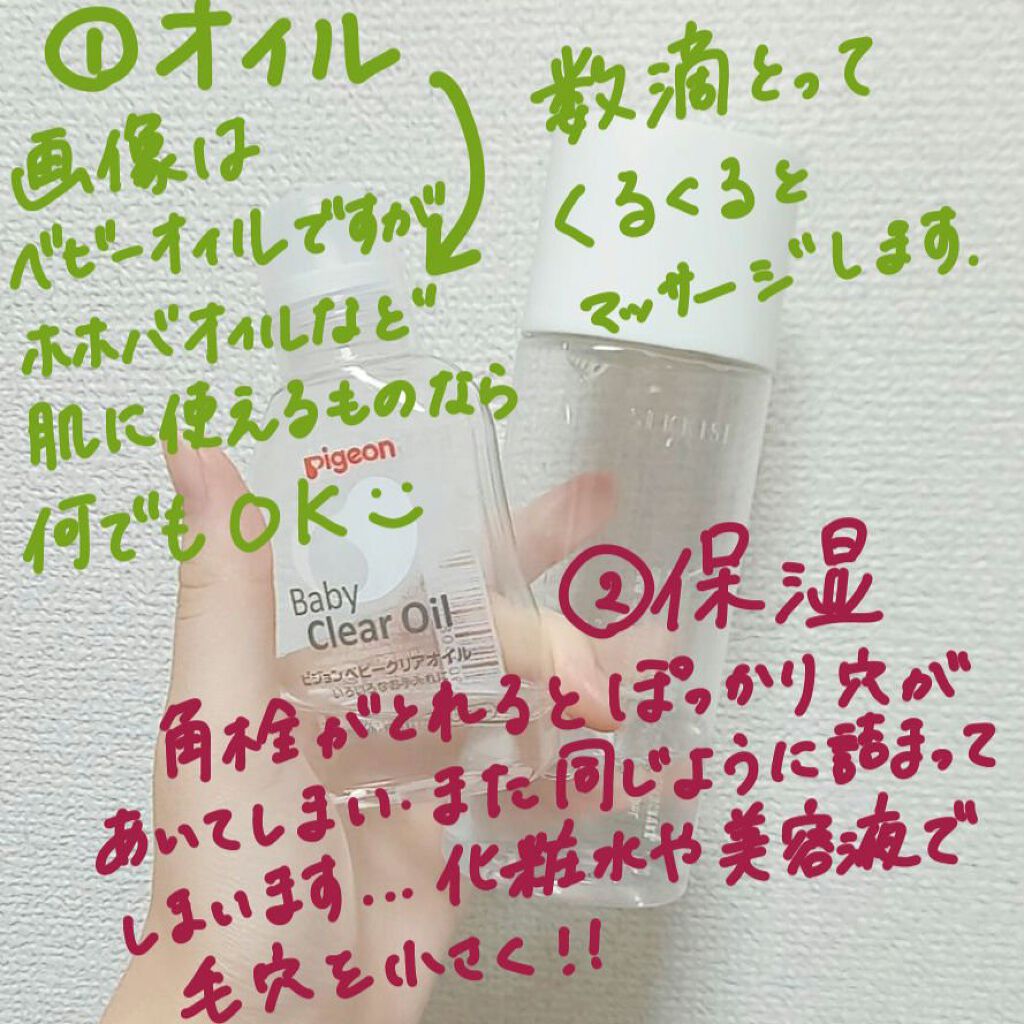 ①オイル
画像は
ベビーオイルですが
ホホバオイルなど
肌に使えるものなら
何でもOK
数滴とって
くるくると
マッサージします.
pigeon
Baby
Clear Oil
ピジョンベビークリアオイル
②保湿
角栓がとれるとぽっかり穴が
あいてしまい.また同じように詰まって
しまいます...化粧水や美容液で
毛穴を小さく!!